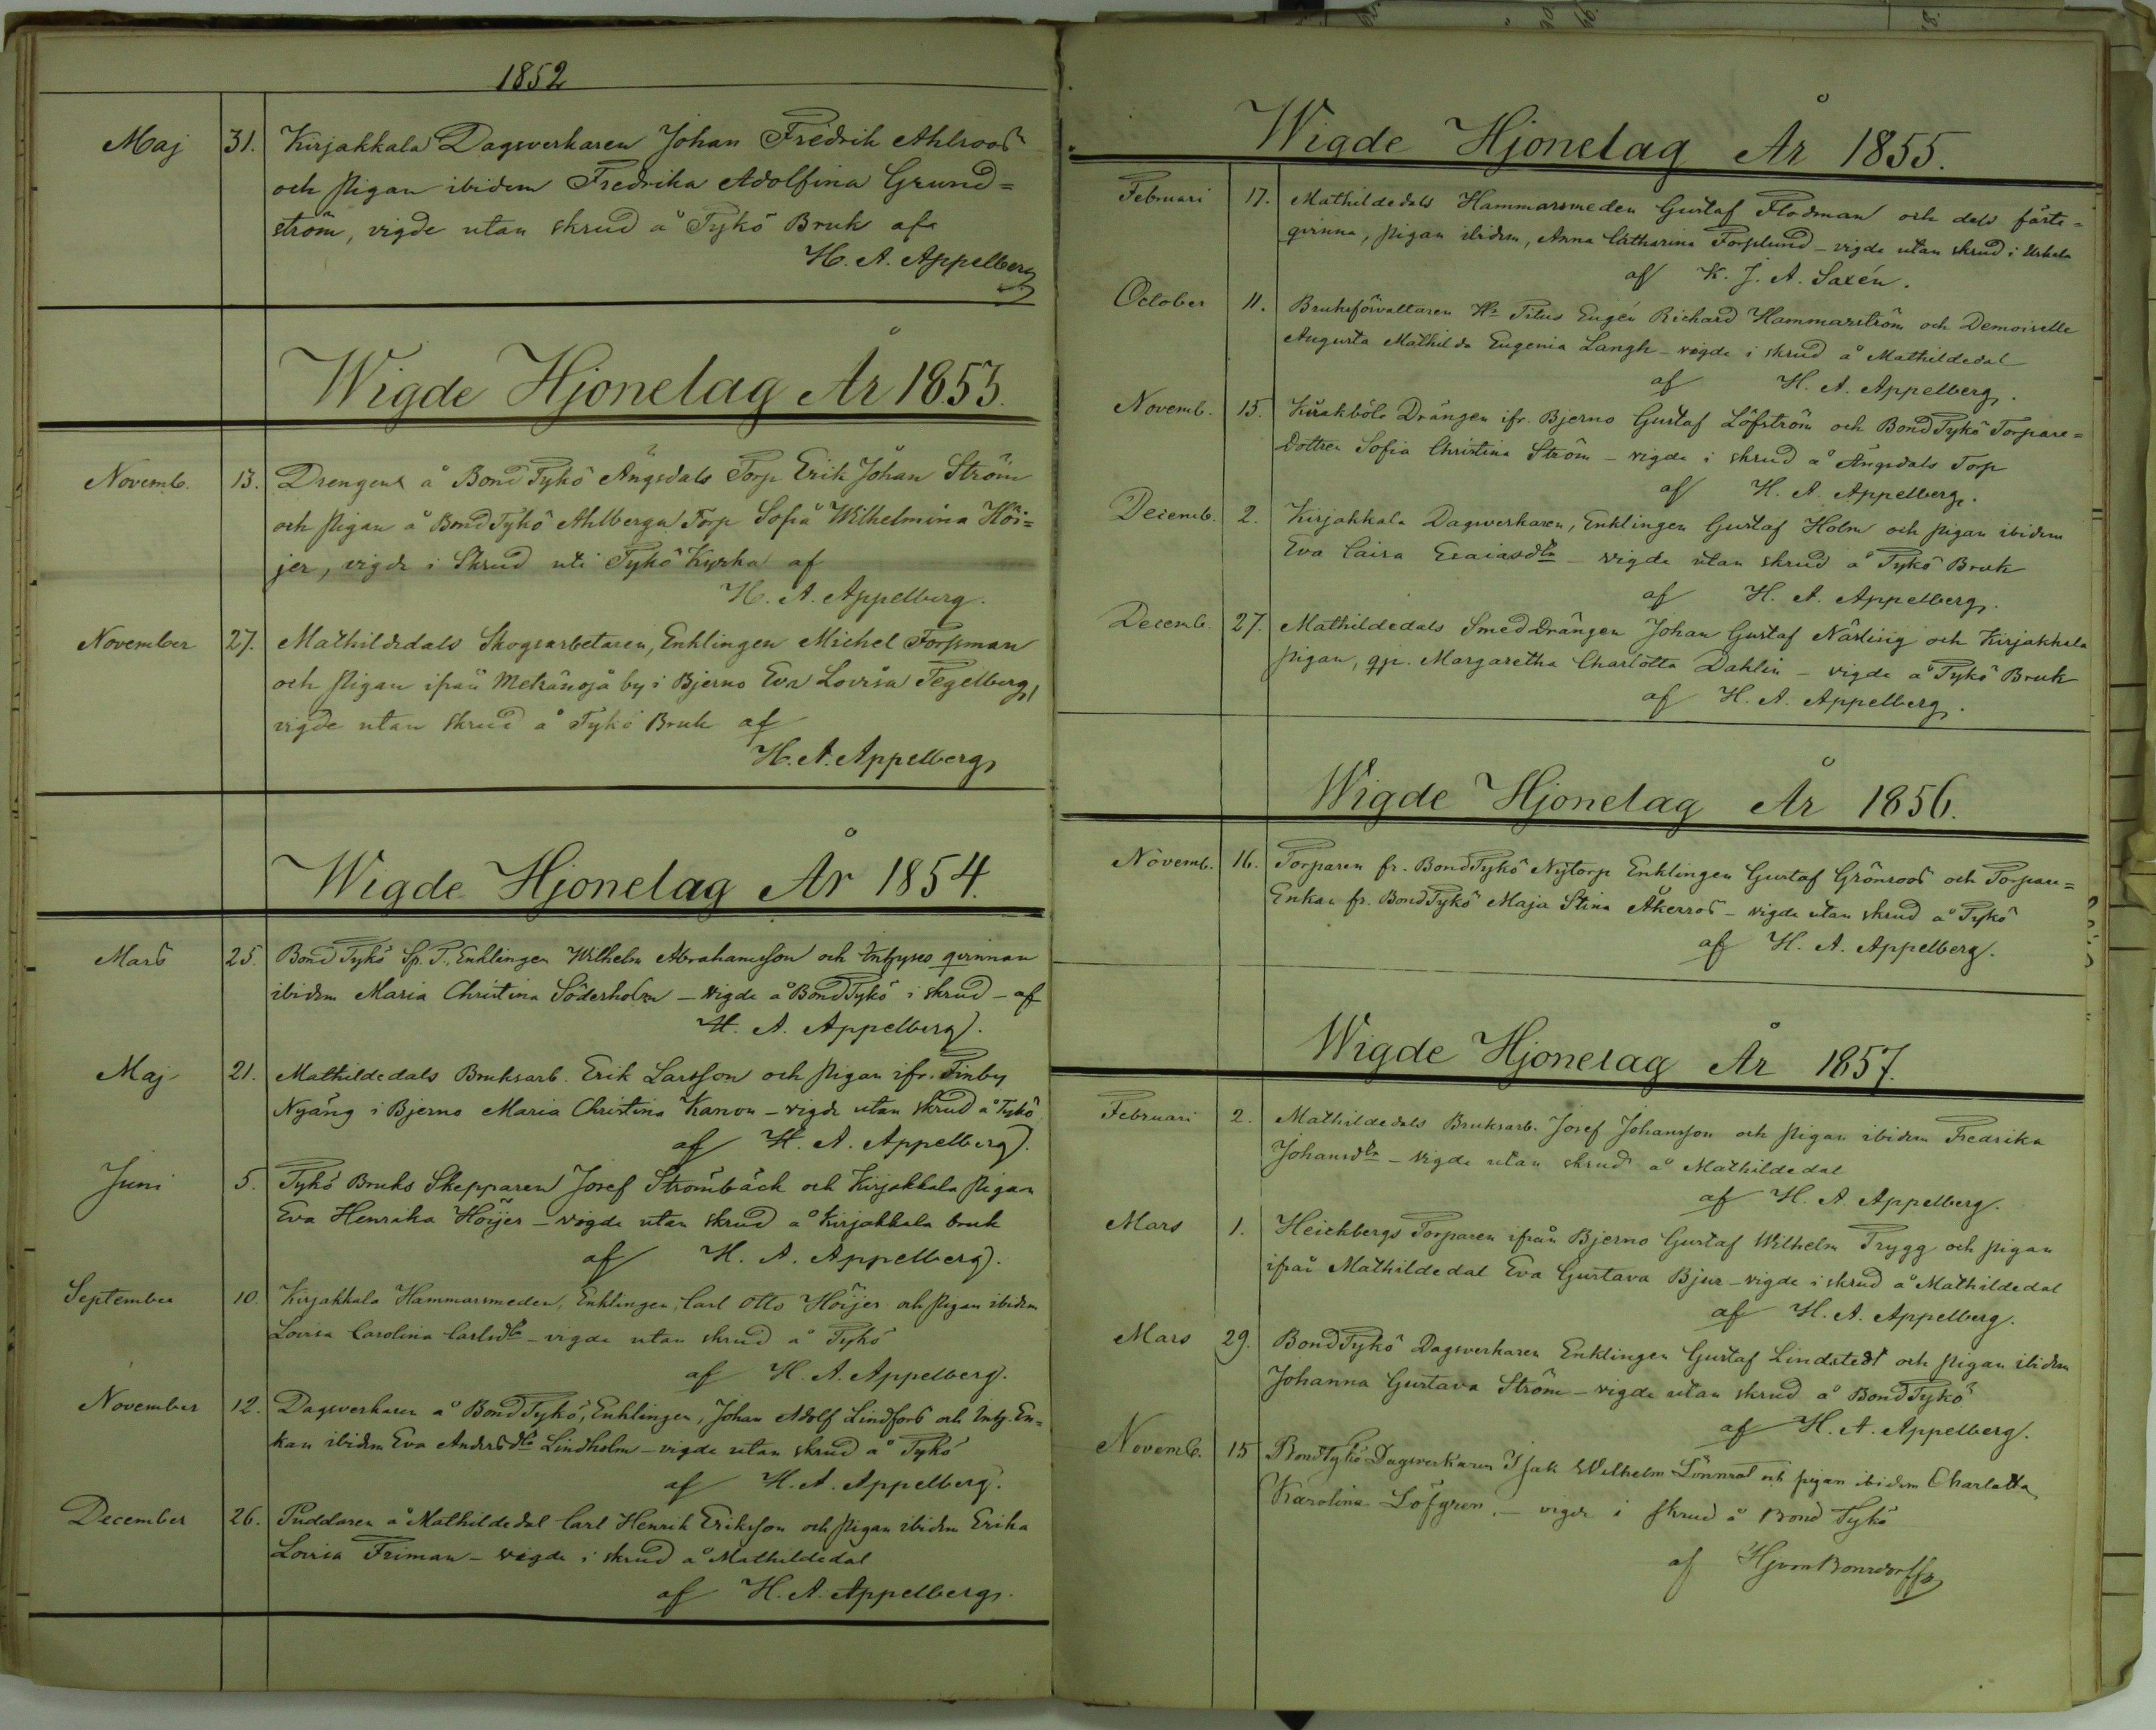 1852
Maj 31. Kirjakkala Dagsverkaren Johan Fredrik Ahlroos
och pigan ibidem Fredrika Adolfina Grund=
ström, vigde utan skrud å Tykö Bruk af
H. A. Appelberg
Wigde Hjonelag År 1853.
Novemb. 13. Drengen å Bond Tykö Ängsdals Torp Erik Johan Ström
och pigan å Bond Tykö Ahlberga Torp Sofia Wilhelmina Höi=
jer, vigde i Skrud uti Tykö Kyrka af
H. A. Appelberg.
November 27. Mathildedals Skogsarbetaren, Enklingen Michel Forssman
och pigan ifrån by i Bjerno Eva Lovisa Tegelberg,
vigde utan skrud å Tykö Bruk af
H. A. Appelberg
Wigde Hjonelag År 1854.
Mars 25. Bond Tykö Sp. T. Enklingen Wilhelm Abrahamsson och Inhyses qvinnan
ibidem Maria Christina Söderholm – vigde å Bond Tykö i skrud – af
H. A. Appelberg.
Maj 21. Mathildedals Bruksarb. Erik Larsson och pigan ifr. Finby
Nyäng i Bjerno Maria Christina Kanon – vigde utan skrud å Tykö
af H. A. Appelberg.
Juni 5. Tykö Bruks Skepparen Josef Strömbäck och Kirjakkala pigan
Eva Henrika Höijer – vigde utan skrud å Kirjakkala bruk
af H. A. Appelberg.
September 10. Kirjakkala Hammarsmeden, Enklingen, Carl Otto Höijer och pigan ibidem
Lovisa Carolina Carlsdtr – vigde utan skrud å Tykö
af H. A. Appelberg.
November 12. Dagsverkaren å Bond Tykö, Enklingen, Johan Adolf Lindfors och Inh. En=
kan ibidem Eva Andersdtr Lindholm – vigde utan skrud å Tykö
af H. A. Appelberg.
December 26. Puddaren å Mathildedal Carl Henrik Eriksson och pigan ibidem Erika
Lovisa Friman – vigde i skrud å Mathildedal
af H. A. Appelberg.
Wigde Hjonelag År 1855.
Februari 17. Mathildedals Hammarsmeden Gustaf Flodman och dess fäste=
qvinna, pigan ibidem, Anna Catharina Forslund – vigde utan skrud i Uskela
af K. J. A. Saxén.
October 11. Bruksförvaltaren Hr Titus Eugén Richard Hammarström och Demoiselle
Augusta Mathilda Eugenia Langh – vigde i skrud å Mathildedal
af H. A. Appelberg.
Novemb. 15. Drängen ifr. Bjerno Gustaf Löfström och Bond Tykö Torpare=
Dottren Sofia Christina Ström – vigde i skrud å Ängsdals Torp
af H. A. Appelberg.
Decemb. 2. Kirjakkala Dagsverkaren, Enklingen Gustaf Holm och pigan ibidem
Eva Caisa Esaiasdtr – vigde utan skrud å Tykö Bruk
af H. A. Appelberg.
Decemb. 27. Mathildedals SmedDrängen Johan Gustaf Närling och Kirjakkala
pigan, qp. Margaretha Charlotta Dahlin – vigde å Tykö Bruk
af H. A. Appelberg.
Wigde Hjonelag År 1856.
Novemb. 16. Torparen fr. Bond Tykö Nytorp Enklingen Gustaf Grönroos och Torpare=
Enkan fr. Bond Tykö Maja Stina Åkerros – vigde utan skrud å Tykö
af H. A. Appelberg.
Wigde Hjonelag År 1857.
Februari 2. Mathildedals Bruksarb. Josef Johansson och pigan ibidem Fredrika
Johansdtr – vigde utan skrud å Mathildedal
af H. A. Appelberg.
Mars 1. Heickbergs Torparen ifrån Bjerno Gustaf Wilhelm Trygg och pigan
ifrån Mathildedal Eva Gustava Bjur – vigde i skrud å Mathildedal
af H. A. Appelberg.
Mars 29. Bond Tykö Dagsverkaren Enklingen Gustaf Lindstedt och pigan ibidem
Johanna Gustava Ström – vigde utan skrud å Bond Tykö
af H. A. Appelberg.
Novemb. 15 Bond Tykö Dagsverkaren Isak Wilhelm Lönnrot och pigan ibidem Charlotta
Karolina Löfgren, – vigde i skrud å Bond Tykö
af Hj von Bonsdorff